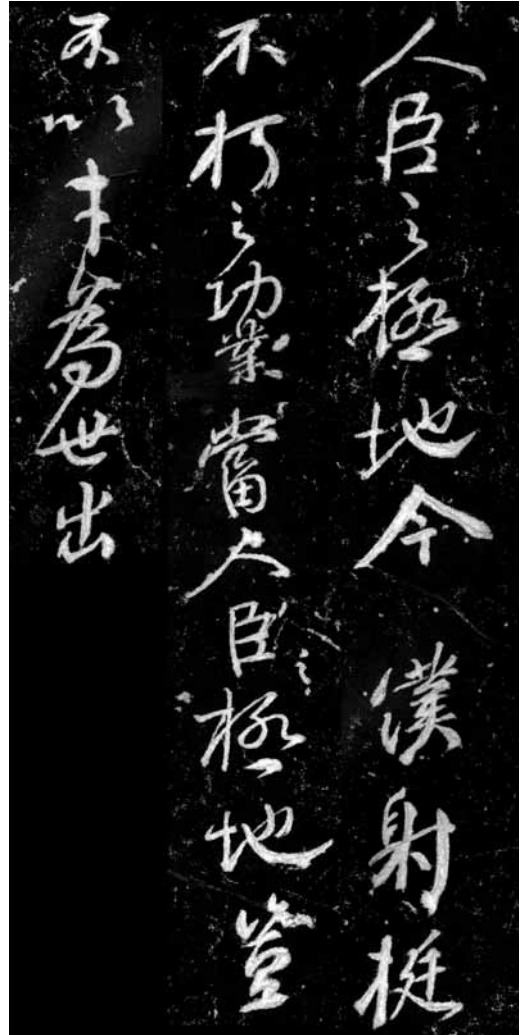 人臣之極地今僕射挺
不朽之功業當人臣之極地豈
不以才為世出